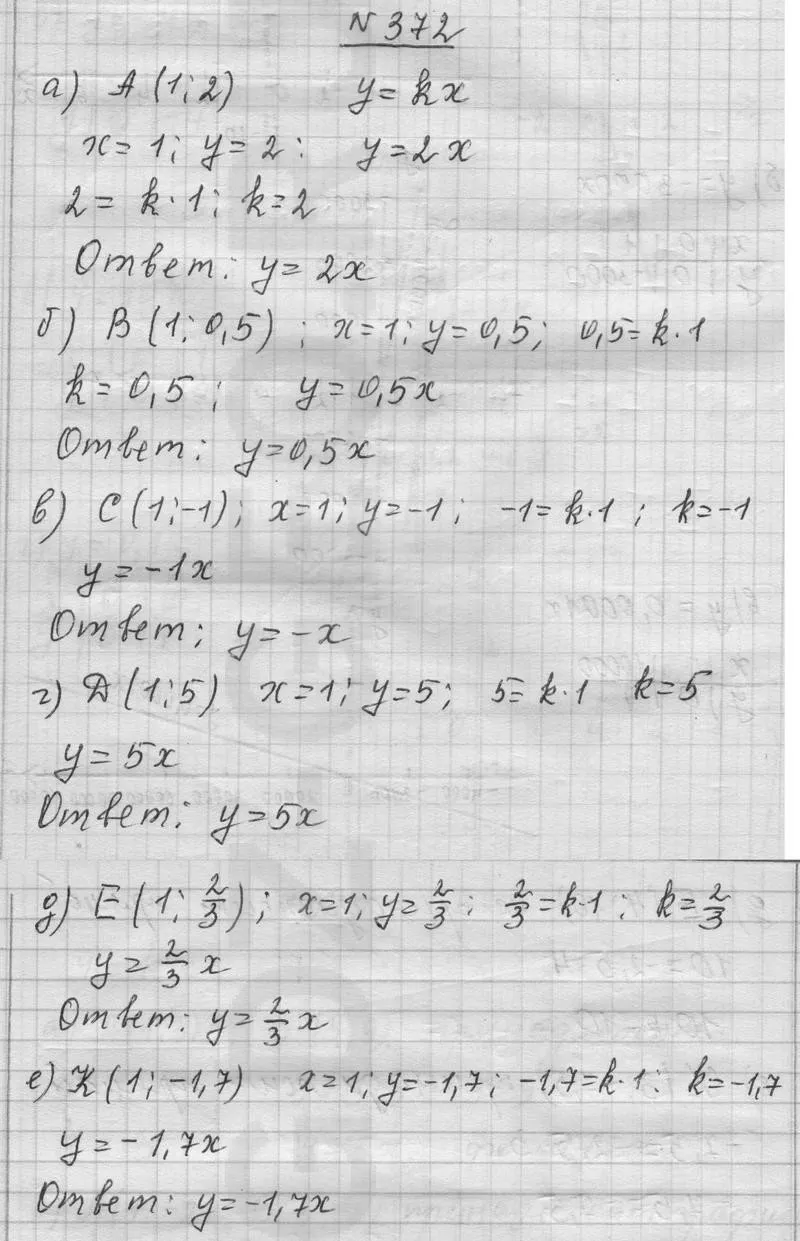 N 372
а) A (1; 2) y = kx
x = 1; y = 2: y = 2x
2 = k·1; k = 2
Ответ: y = 2x
б) B (1; 0,5) ; x = 1; y = 0,5; 0,5 = k·1
k = 0,5; y = 0,5x
Ответ: y = 0,5x
в) C (1; -1); x = 1; y = -1; -1 = k·1 ; k = -1
y = -1x
Ответ; y = -x
г) Д (1; 5) x = 1; y = 5; 5 = k·1 k = 5
y = 5x
Ответ: y = 5x
д) E (1; 2/3); x = 1; y = 2/3; 2/3 = k·1; k = 2/3
y = 2/3 x
Ответ: y = 2/3 x
е) K (1; -1,7) x = 1; y = -1,7; -1,7 = k·1: k = -1,7
y = -1,7x
Ответ: y = -1,7x